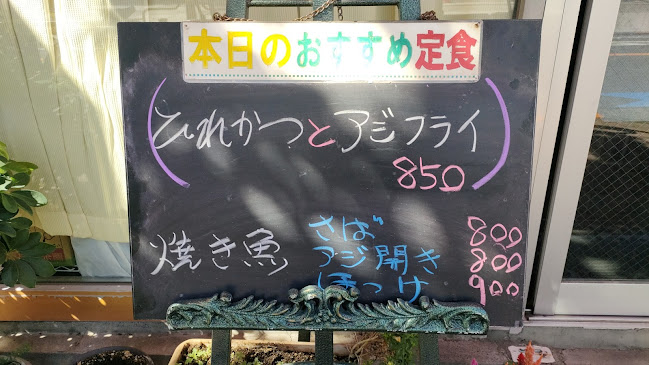 本日のおすすめ定食
ひれかつとアジフライ
850
焼き魚 さば 800
アジ開き 800
ほっけ 900